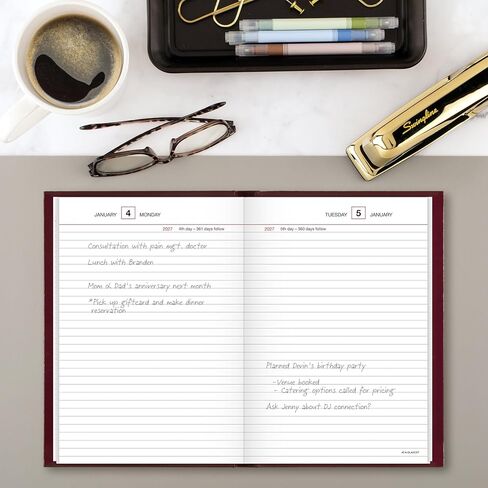 Swingline
JANUARY 4 MONDAY
2027 4th day – 361 days follow
Consultation with pain mgt. doctor
Lunch with Branden
Mom & Dad's anniversary next month
*Pick up giftcard and make dinner
reservation
TUESDAY 5 JANUARY
2027 5th day – 360 days follow
Planned Devin's birthday party
-Venue booked
- Catering options called for pricing
Ask Jenny about DJ connection?
AT-A-GLANCE